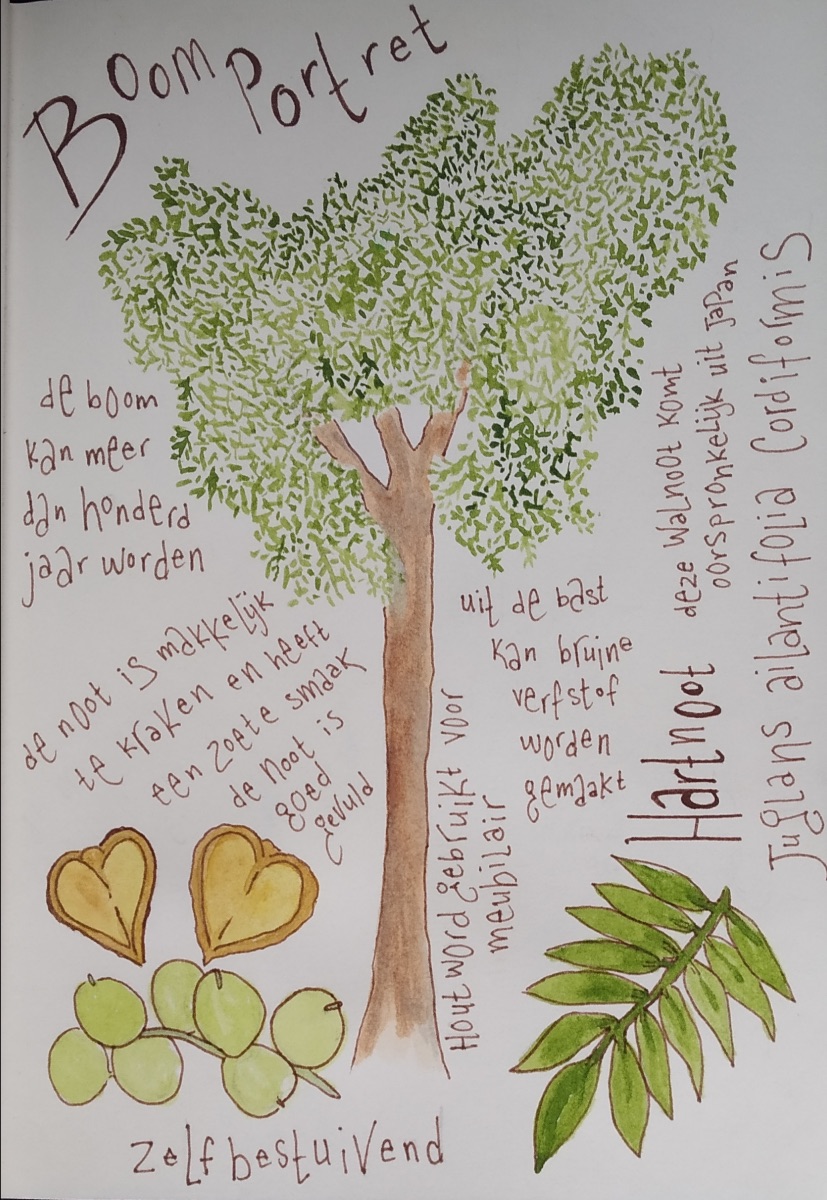 Boom Portret
de boom
kan meer
dan honderd
jaar worden
de noot is makkelijk
te kraken en heeft
een zoete smaak
de noot is
goed
gevuld
uit de bast
kan bruine
verfstof
worden
gemaakt
Hout word gebruikt voor
meubilair
deze walnoot komt
oorspronkelijk uit Japan
Hartnoot
Juglans ailantifolia Cordiformis
zelfbestuivend